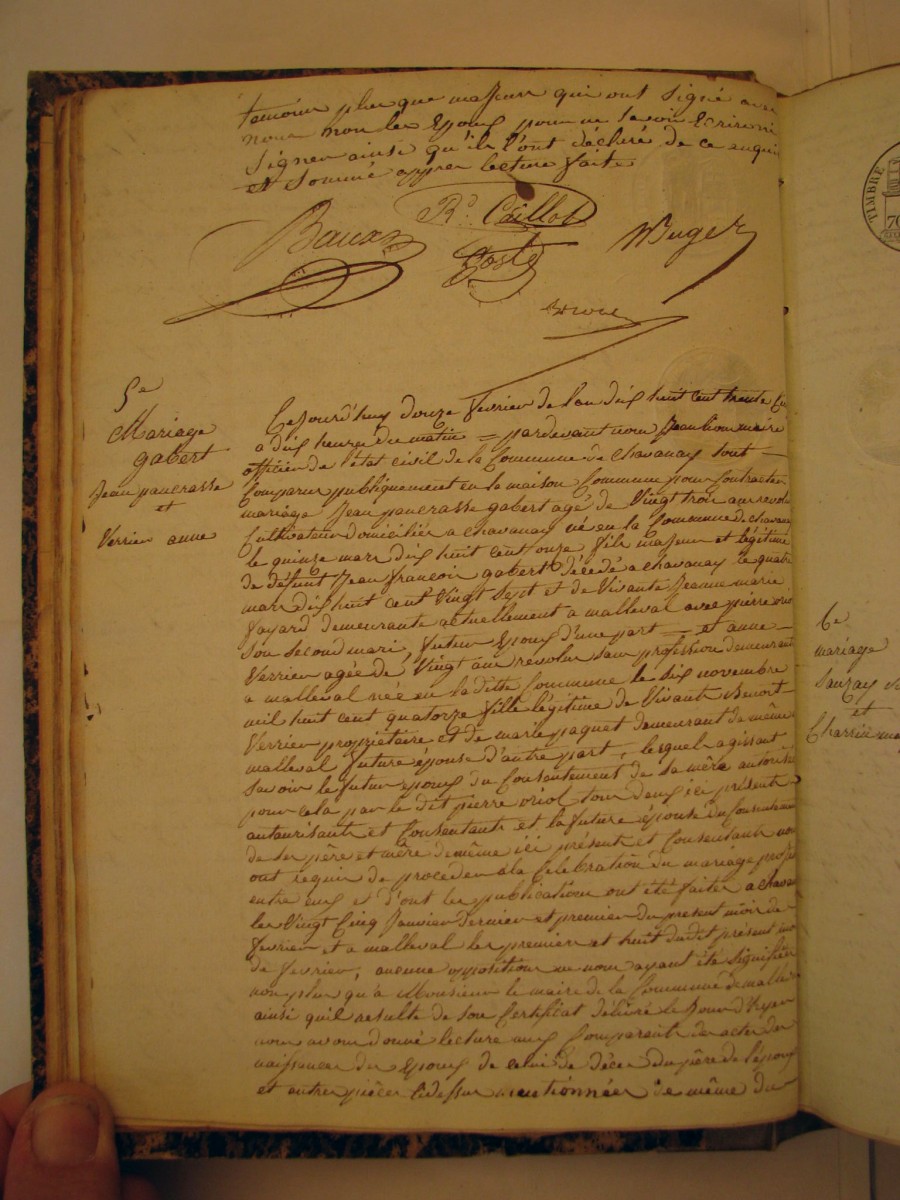 temoins plus que majeurs qui ont signé avec
nous non les Epoux pour ne savoir Ecrire ni
signer ainsi qu'ils l'ont déclaré de ce enquis
et sommé apprès lecture faite
Rd Caillot
Buger
5e
Mariage
gabert
Jean pancrasse
et
Verrier anne
Cejourd'huy douze fevrier de l'an dix huit cent trente
a dix heures du matin = pardevant nous Jean maire
officier de l'état civil de la Commune de Chavanay sont
Comparus publiquement en la maison Commune pour Contracter
mariage Jean pancrasse gabert agé de Vingt trois ans revolu
Cultivateur domicilié a chavanay né en la Commune de chavanay
le quinze mars dix huit cent onze fils majeur et légitime
de défunt Jean françois gabert décédé a chavanay le quatre
mars dix huit cent Vingt Sept et de Vivante Jeanne marie
fayard demeurante actuellement a malleval avec pierre oriol
son second mari, futur Epoux d'une part = et anne
Verrier agée de Vingt ans revolus sans profession demeurant
a malleval née en la ditte Commune le dix novembre
mil huit cent quatorze fille légitime de Vivants Benoit
Verrier propriétaire et de marie paquet demeurant de même
malleval future épouse d'autre part, lesquels agissant
savoir le futur epoux du Consentement de sa mère autorisé
pour cela par le dit pierre oriol tous deux ici présents
autaurisants et Consentants et la future épouse du Consentement
de ses père et mère de même ici présents et Consentants nous
ont requis de proceder à la Celebration du mariage
entre eux et d'ont les publications ont été faites a chavanay
les Vingt Cinq Janvier dernier et premier du present mois de
fevrier et a malleval les premier et huit du dit présent mois
de fevrier, aucune opposition ne nous ayant été signifiée
non plus qu'a Monsieur le maire de la Commune de malleval
ainsi qu'il resulte de son Certifiat délivré le Jour d'hyer
nous avons donné lecture aux Comparents des actes de
naissances des Epoux de celui de décès du père de l'époux
et autres pièces cidessus mentionnées de même du
TIMBRE
70
6e
mariage
et